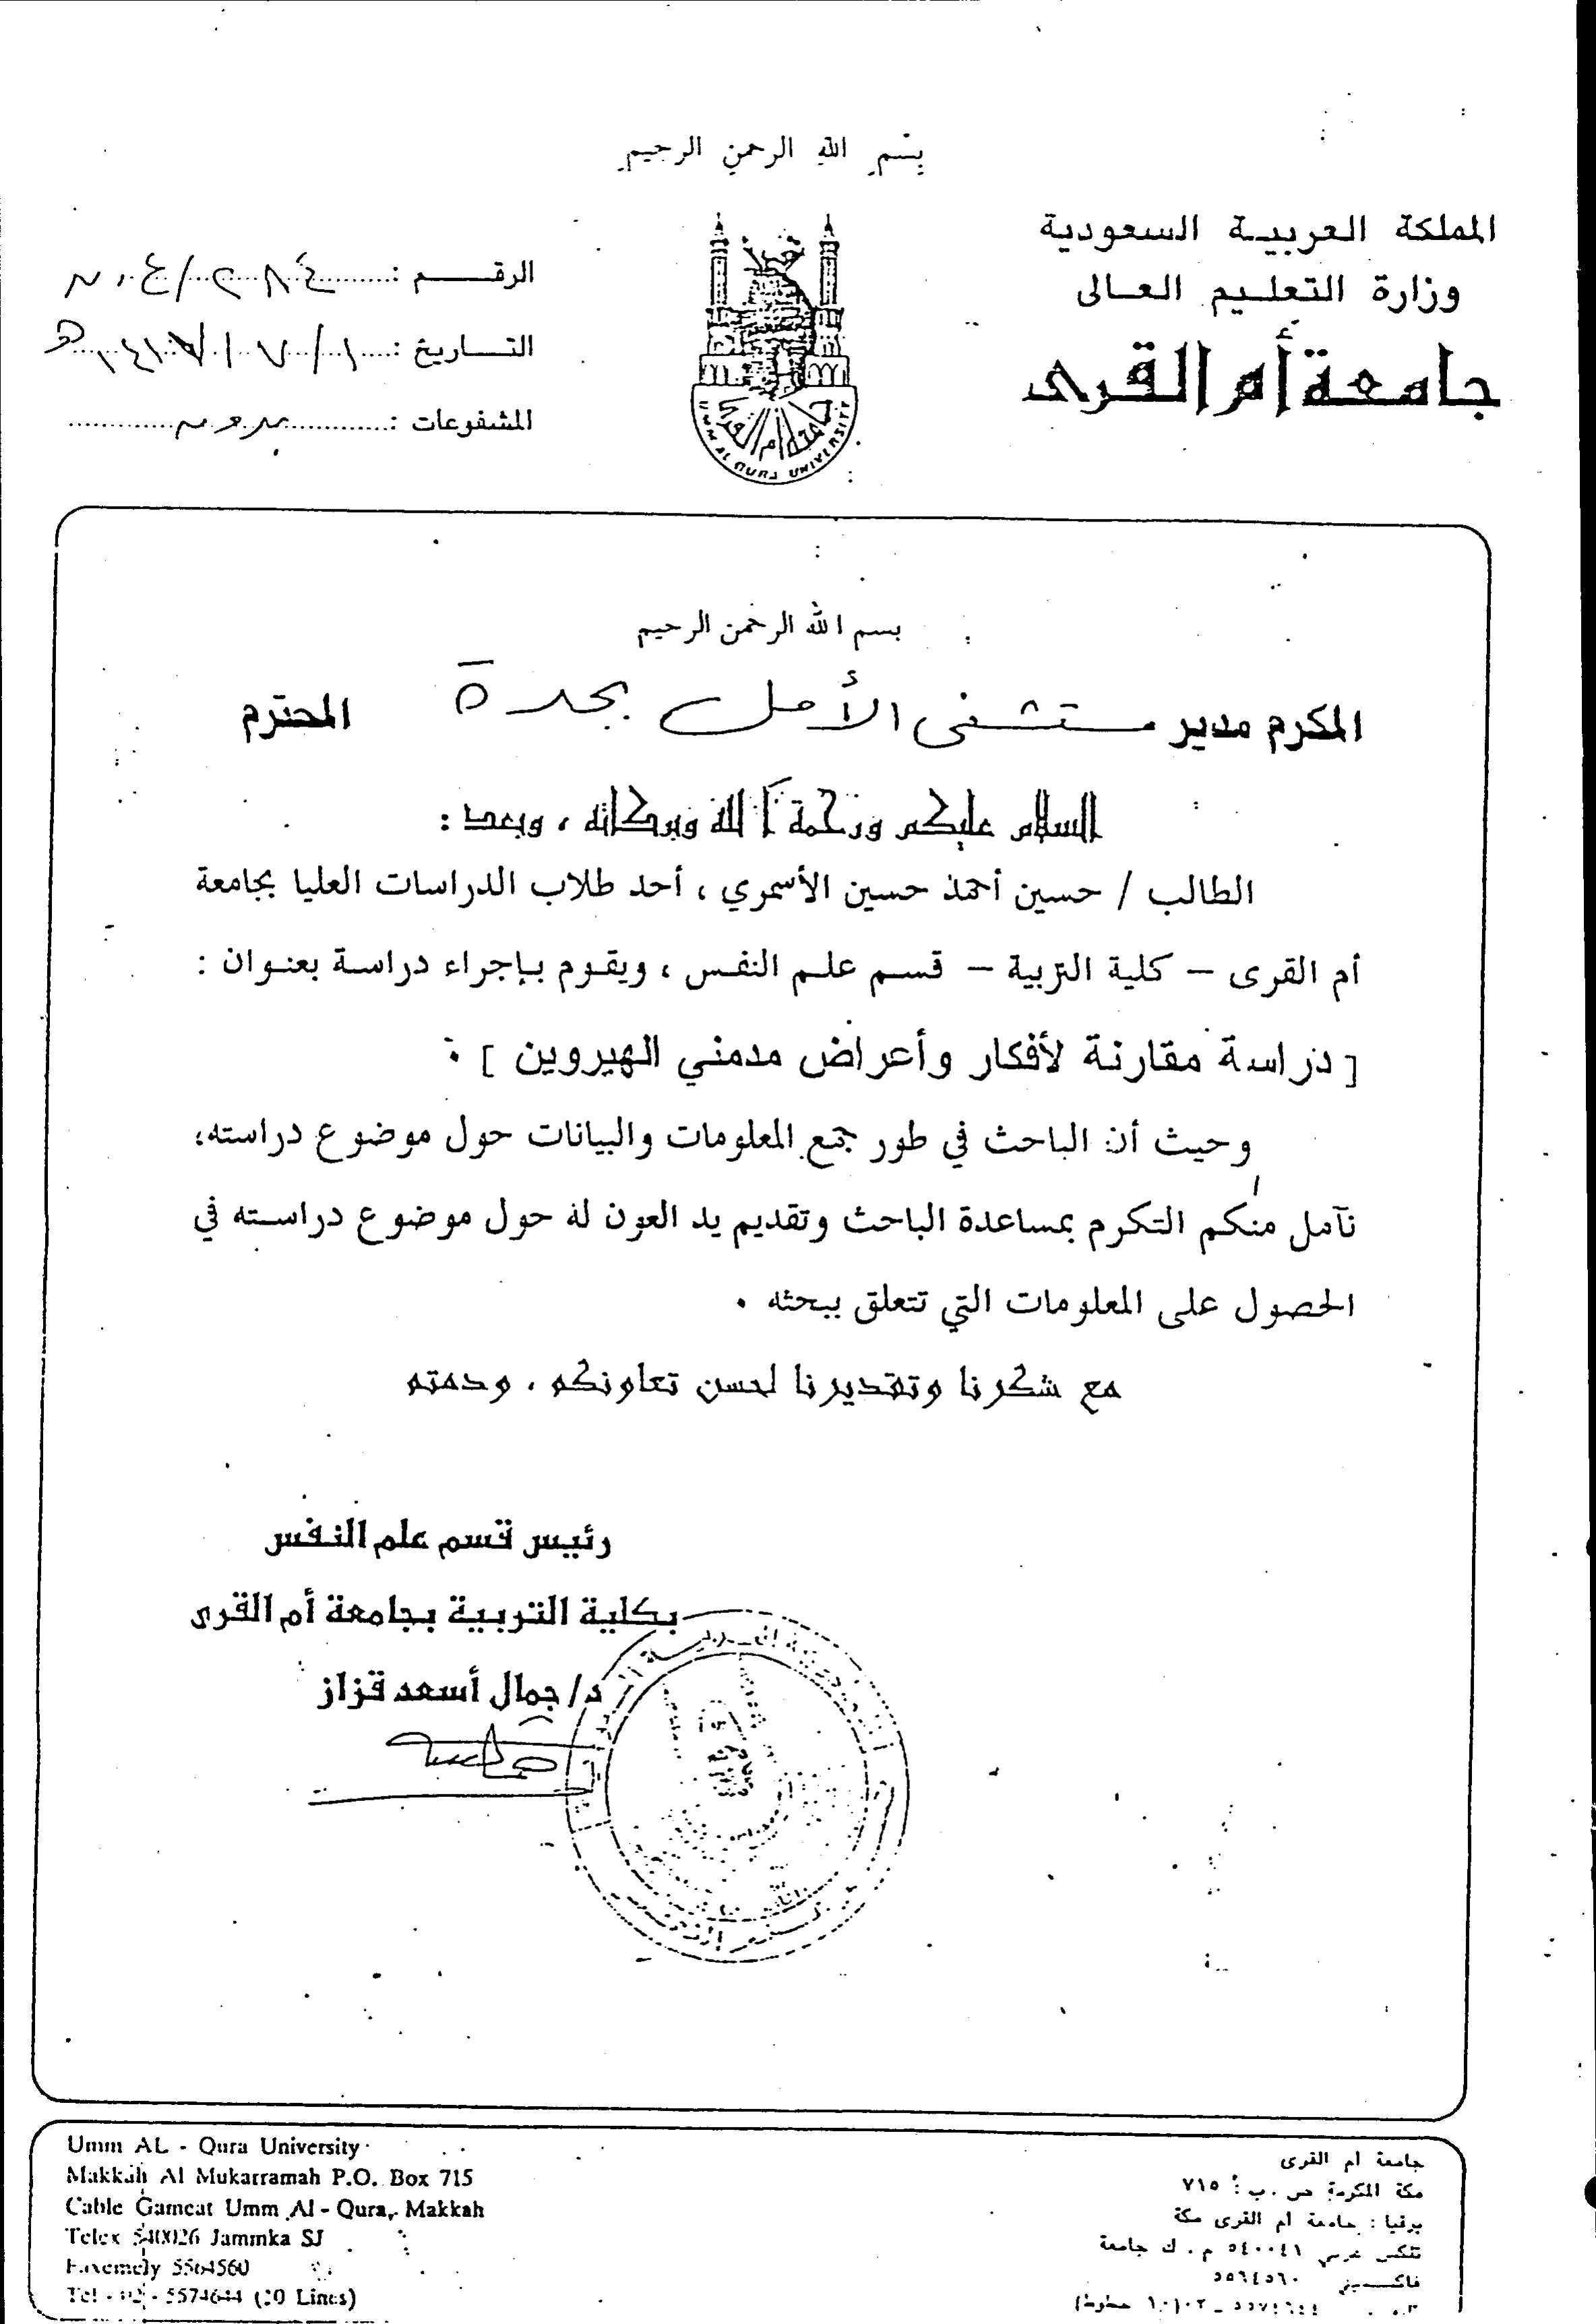 بسم الله الرحمن الرحيم
المملكة العربية السعودية
وزارة التعليم العالى
جامعة أم القرى
الرقم :
التاريخ :
المشفوعات : بدون
UMM AL QURA UNIVERSITY
بسم الله الرحمن الرحيم
المكرم مدير مستشفى الأمل بجدة المحترم
السلام عليكم ورحمة الله وبركاته ، وبعد :
الطالب / حسين أحمد حسين الأسمري ، أحد طلاب الدراسات العليا بجامعة
أم القرى – كلية التربية – قسم علم النفس ، ويقوم بإجراء دراسة بعنوان :
[ دراسة مقارنة لأفكار وأعراض مدمني الهيروين ] .
وحيث أن الباحث في طور جمع المعلومات والبيانات حول موضوع دراسته،
نآمل منكم التكرم بمساعدة الباحث وتقديم يد العون له حول موضوع دراسته في
الحصول على المعلومات التي تتعلق ببحثه .
مع شكرنا وتقديرنا لحسن تعاونكم ، ودمتم
رئيس قسم علم النفس
بكلية التربية بجامعة أم القرى
د/ جمال أسعد قزاز
Umm AL - Qura University
Makkah Al Mukarramah P.O. Box 715
Cable Gameat Umm Al - Qura, Makkah
Telex 540026 Jammka SJ
Faxemely 5564560
Tel - 02 - 5574644 (10 Lines)
جامعة أم القرى
مكة المكرمة ص . ب : ٧١٥
برقيا : جامعة أم القرى مكة
تلكس عربي ٥٤٠٠٤١ م . ك جامعة
فاكسميلي ٥٥٦٤٥٦٠
٥٥٧٤٦٤٤ – ٠٢ (١٠ خطوط)